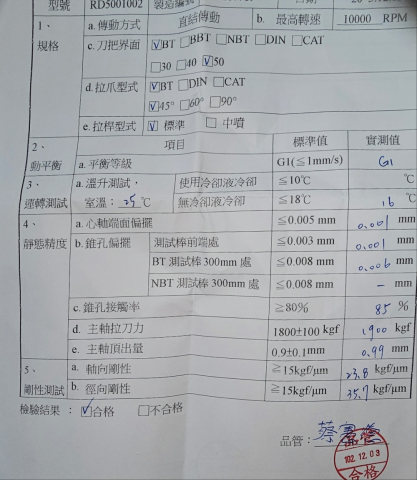 型號 RD5001002 製造編號
1、 a. 傳動方式 直結傳動 b. 最高轉速 10000 RPM
規格 c. 刀把界面 ☑BT □BBT □NBT □DIN □CAT
□30 □40 ☑50
d. 拉爪型式 ☑BT □DIN □CAT
☑45° □60° □90°
e. 拉桿型式 ☑ 標準 □ 中噴
2、 項目 標準值 實測值
動平衡 a. 平衡等級 G1(≦1mm/s) G1
3、 a. 溫升測試, 使用冷卻液冷卻 ≦10℃ ℃
運轉測試 室溫: 25 ℃ 無冷卻液冷卻 ≦18℃ 16 ℃
4、 a. 心軸端面偏擺 ≦0.005 mm 0.001 mm
靜態精度 b. 錐孔偏擺 測試棒前端處 ≦0.003 mm 0.001 mm
BT 測試棒 300mm 處 ≦0.008 mm 0.006 mm
NBT 測試棒 300mm 處 ≦0.008 mm - mm
c. 錐孔接觸率 ≧80% 85 %
d. 主軸拉刀力 1800±100 kgf 1900 kgf
e. 主軸頂出量 0.9±0.1mm 0.99 mm
5、 a. 軸向剛性 ≧15kgf/μm 23.8 kgf/μm
剛性測試 b. 徑向剛性 ≧15kgf/μm 35.7 kgf/μm
檢驗結果: ☑合格 □不合格
品管:蔡
102.12.03
合格